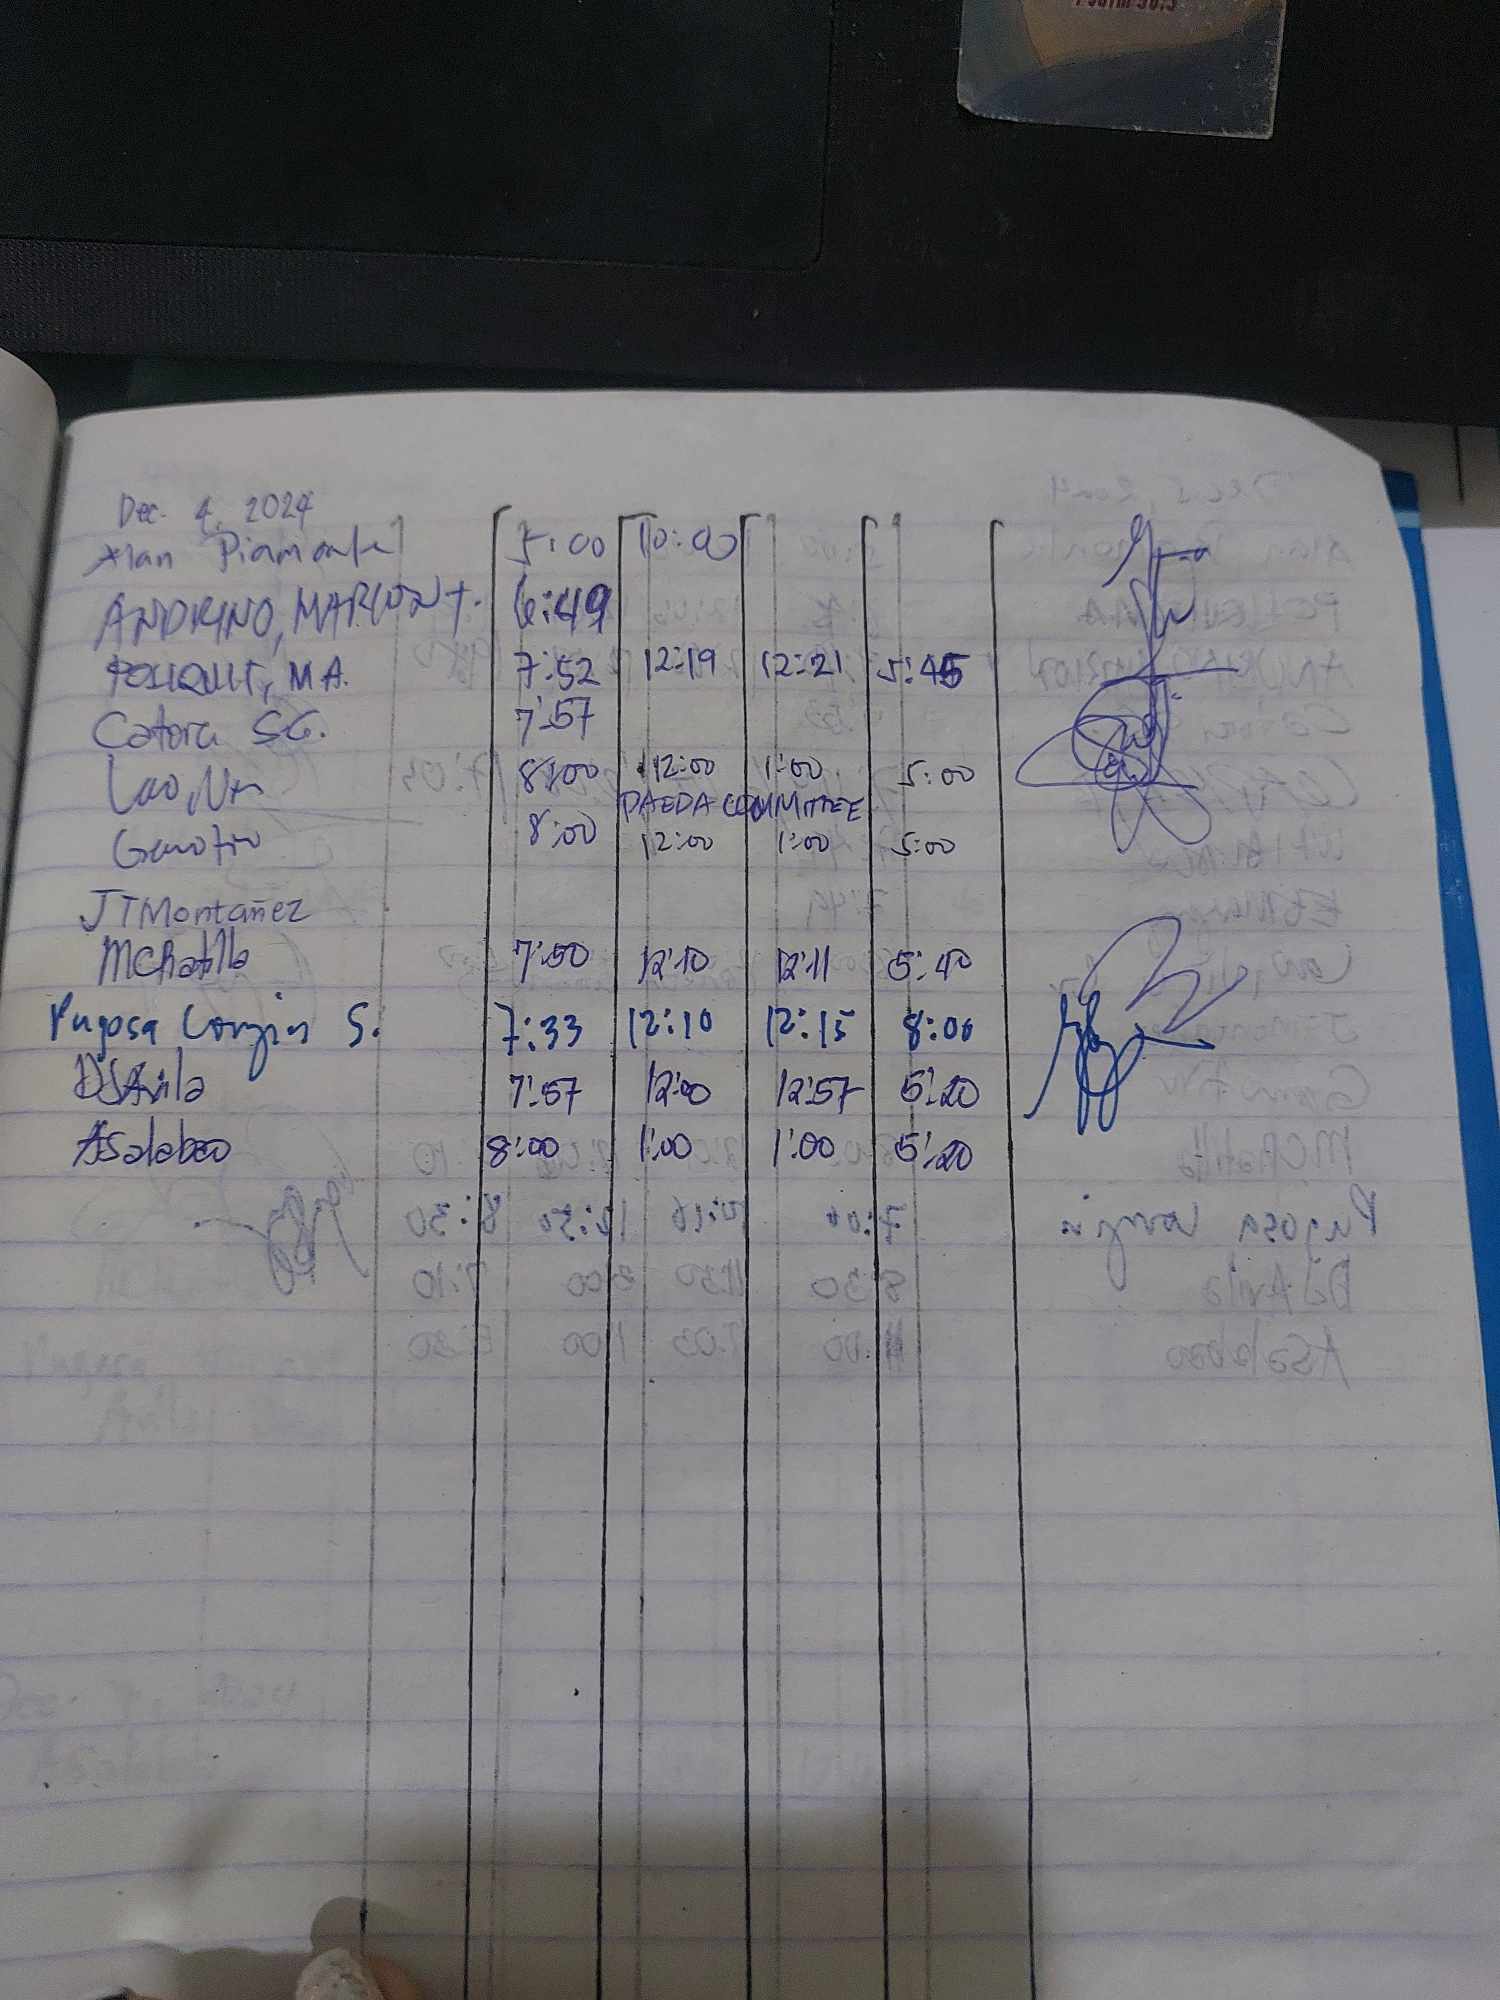 Psalm 56:3
Dec. 4, 2024
Alan Piamonte 5:00 10:00
ANDRINO, MARLON T. 6:49
POLIQUIT, M A. 7:52 12:19 12:21 5:45
Catora S.G. 7:57
Lao, 8:00 12:00 1:00 5:00
PAEDA COMMITTEE
8:00 12:00 1:00 5:00
JTMontañez
MCRatilla 7:50 12:10 12:11 5:40
Pugosa Longin S. 7:33 12:10 12:15 8:00
DJAvila 7:57 12:00 12:57 5:20
ASalabao 8:00 1:00 1:00 5:20